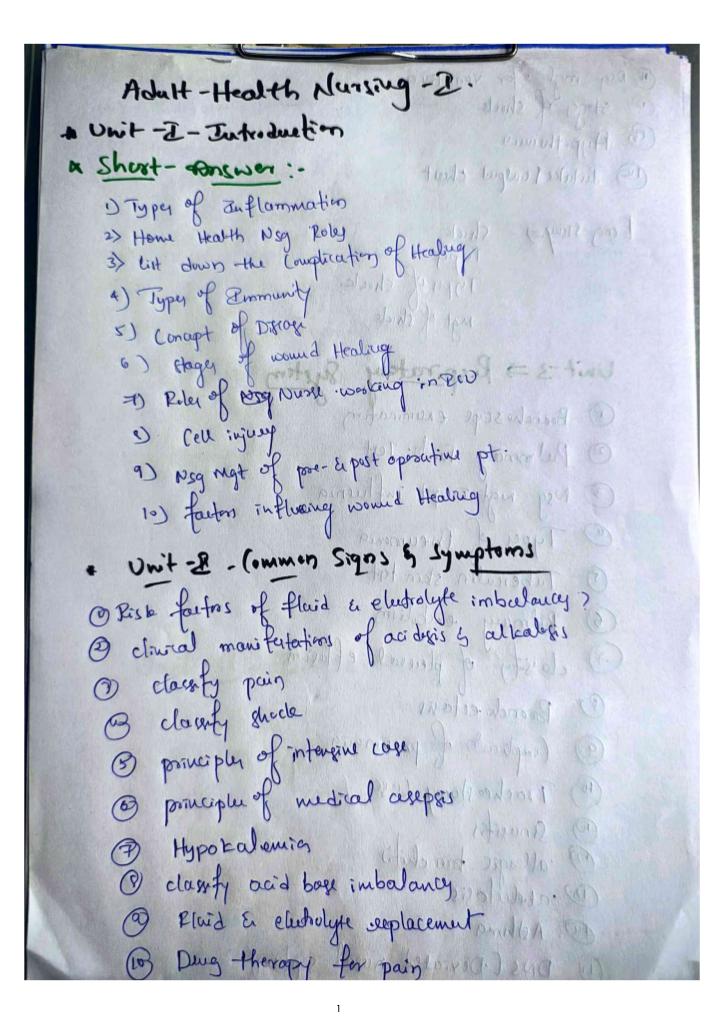 Adult-Health Nursing-I.
* Unit-I-Introduction
* Short-answer:-
1) Types of Inflammation
2) Home Health Nsg Roles
3) List down the Complication of Healing
4) Types of Immunity
5) Concept of Disease
6) stages of wound Healing
7) Roles of Nurse working in ICU
8) Cell injury
9) Nsg Mgt of pre- & post operative pt.
10) factors influcing wound Healing
• Unit-II - Common Signs & Symptoms
① Risk factors of fluid & electrolyte imbalancy?
② clinical manifestations of acidosis & alkalosis
③ classify pain
④ classify shock
⑤ principles of intensive care
⑥ principles of medical asepsis
⑦ Hypokalemia
⑧ classify acid base imbalancy
⑨ Fluid & electrolyte replacement
⑩ Drug therapy for pain
1